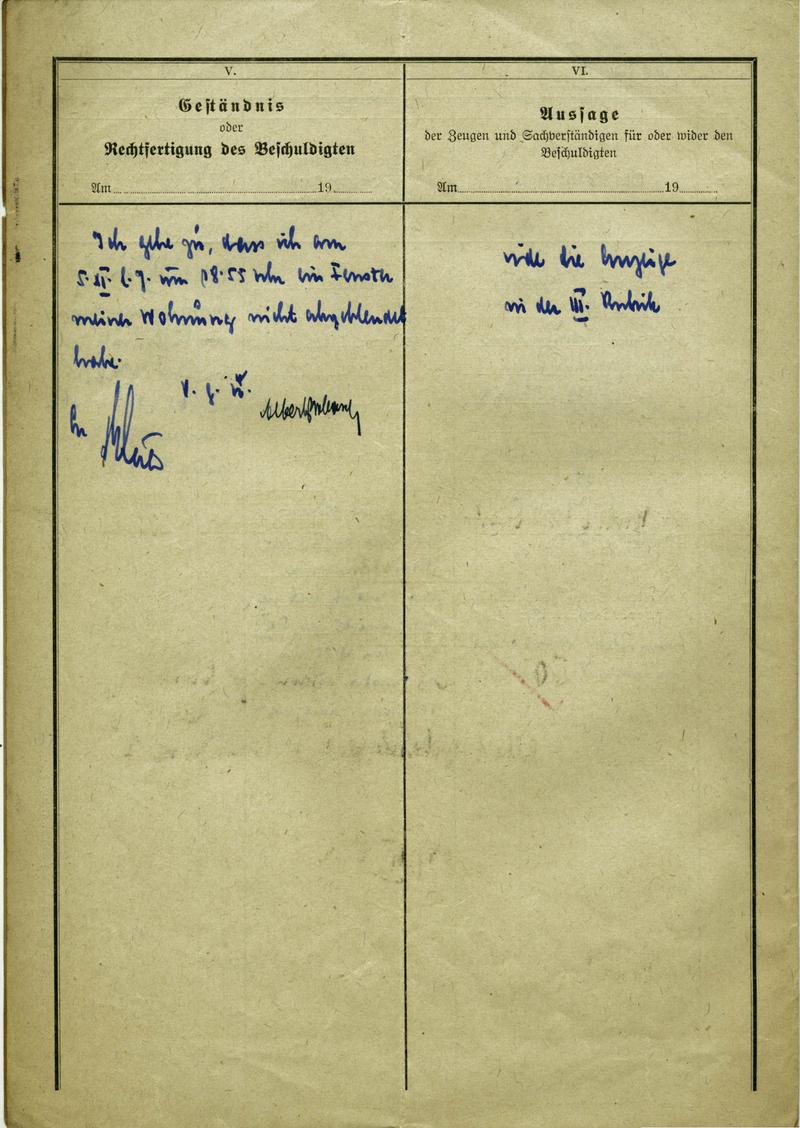 V.
Geständnis
oder
Rechtfertigung des Beschuldigten
Am 19
Ich gebe zu, dass ich am
5. II. l. J. um 18.55 Uhr ein Fenster
meiner Wohnung nicht abgeblendet
habe.
v. g. u.
Albert
VI.
Aussage
der Zeugen und Sachverständigen für oder wider den
Beschuldigten
Am 19
vide die Anzeige
in der III. Rubrik